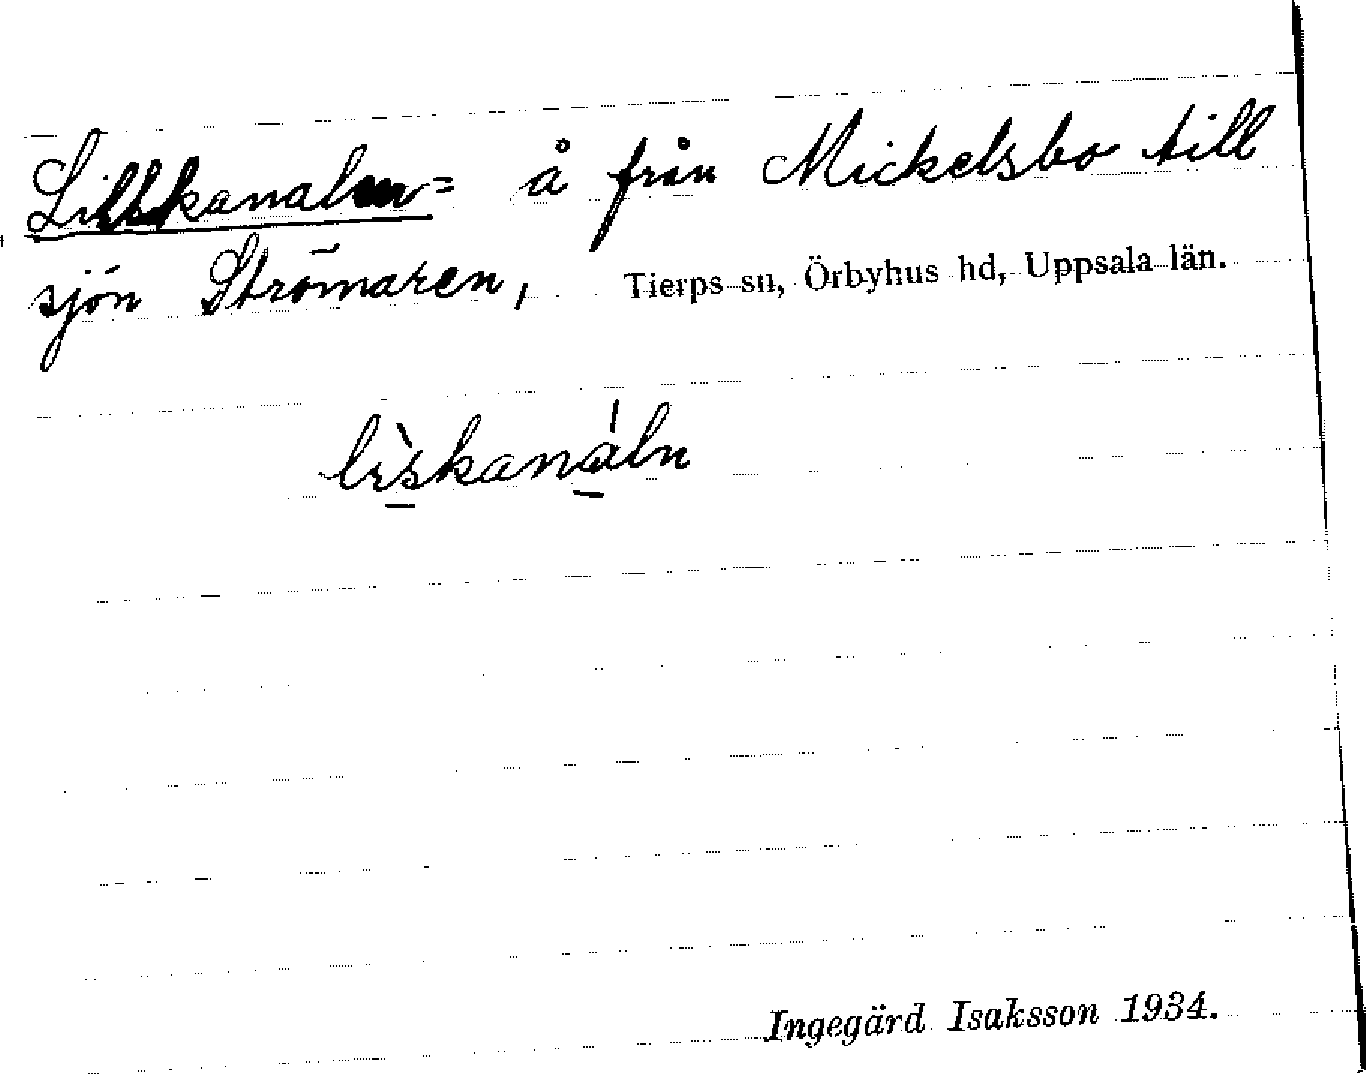 Lillkanalen = å från Mickelsbo till
sjön Strömaren, Tierps sn, Örbyhus hd, Uppsala län.
lìskanáln
Ingegärd Isaksson 1934.